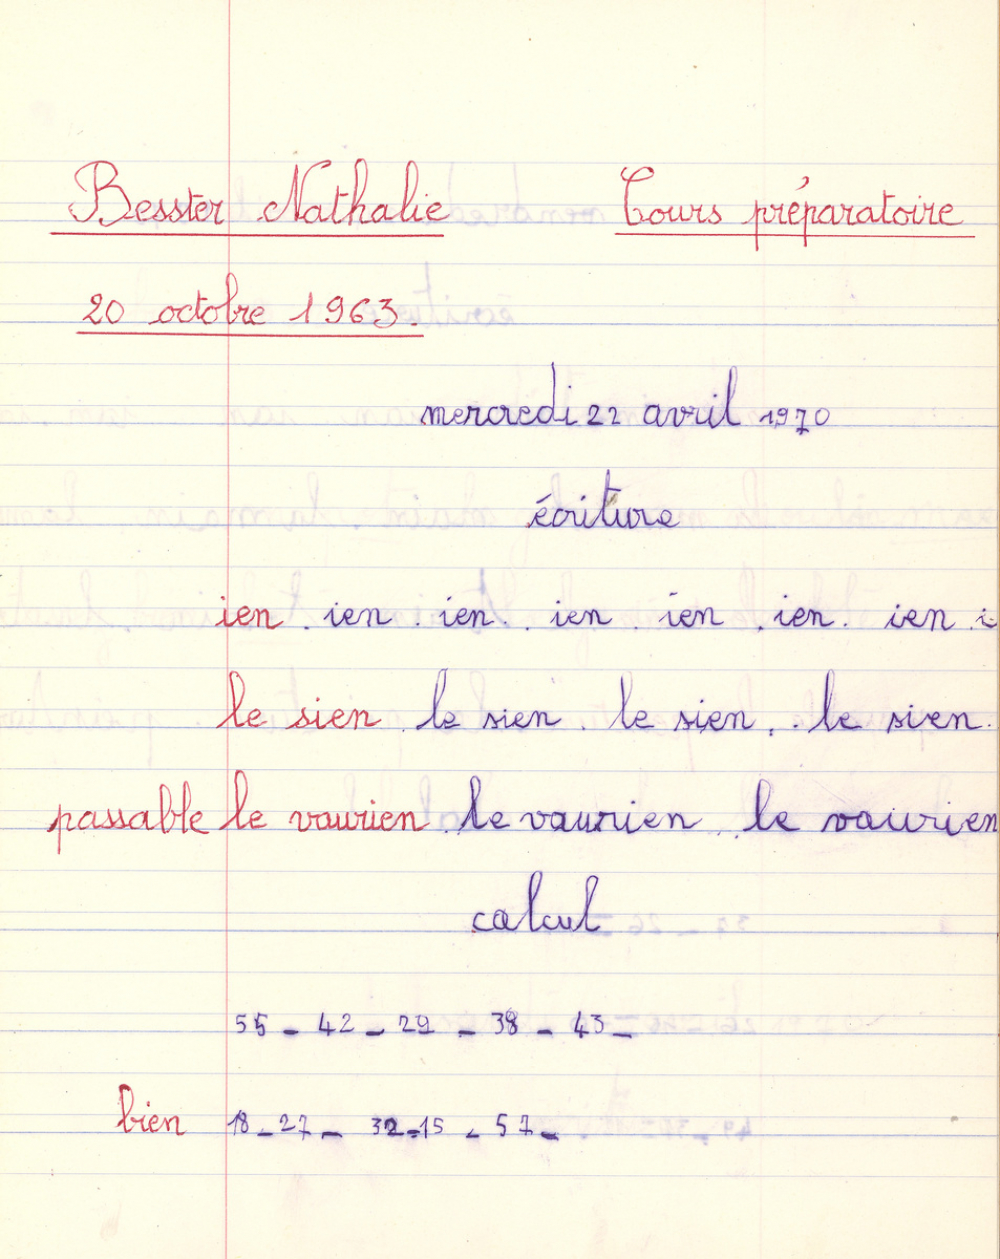 Besster Nathalie Cours préparatoire
20 octobre 1963.
mercredi 22 avril 1970
écriture
ien . ien . ien . ien ien . ien . ien . i
le sien le sien . le sien . . le sien .
passable le vaurien . le vaurien le vaurien
calcul
55 - 42 - 29 - 38 - 43 -
bien 18 - 27 - 32 - 15 - 57 -